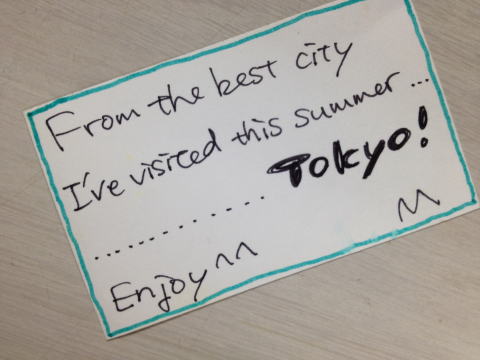 From the best city
I've visited this summer ...
............. Tokyo!
Enjoy ^^ M